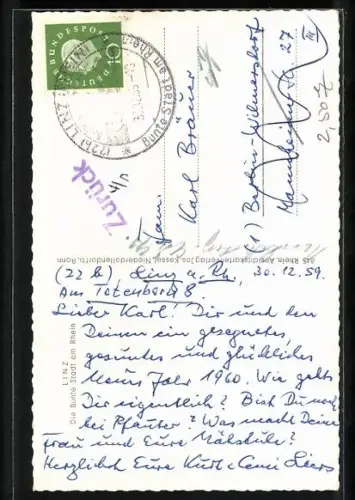 DEUTSCHE BUNDESPOST
10
(22b) LINZ
Bunte Stadt am Rhein
Zurück
Fam.
Karl Bräuer
(1) Berlin-Wilmersdorf
Mannheimer Str. 27
III
2,50
845 Rhein. Ansichtskartenverlag Jos. Kessel, Niederdollendorf b. Bonn
LINZ
Die Bunte Stadt am Rhein
(22b) Linz a. Rh., 30.12.59.
Am Totenborn 8
Lieber Karl! Dir und den
Deinen ein gesegnetes,
gesundes und glückliches
Neues Jahr 1960. Wie geht's
Dir eigentlich? Bist Du noch
bei Pfauter? Was macht Deine
Frau und Eure
Herzlichst Eure Kurt